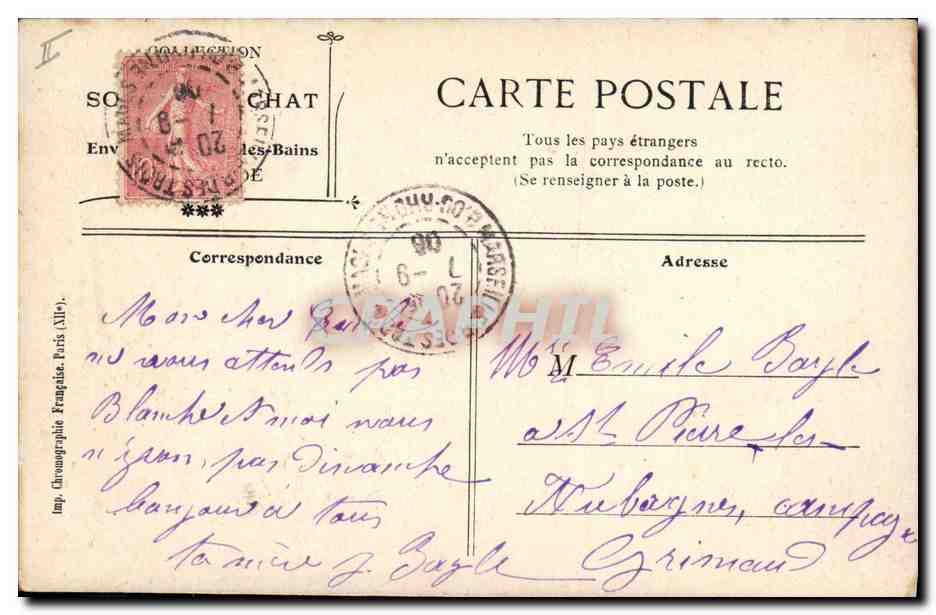 II
COLLECTION
SO CHAT
Env les-Bains
DE
CARTE POSTALE
Tous les pays étrangers
n'acceptent pas la correspondance au recto.
(Se renseigner à la poste.)
MARSEILLE
20
7 -9
06
Correspondance
Adresse
Mon cher Emile
ne vous attends pas
Blanche et moi nous
n'iron, pas Dimanche
bonjour a tous
ta mère J. Bayle
Mr M Emile Bayle
a St Pierre les
Aubagnes, campag
Grimaud
Imp. Chromographie Française. Paris (XIIe).
GRAPHTIL